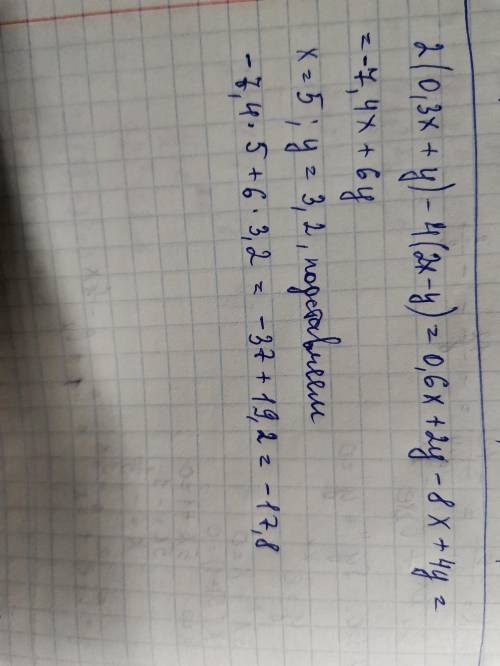 2(0,3x + y) - 4(2x - y) = 0,6x + 2y - 8x + 4y =
= -7,4x + 6y
x = 5 ; y = 3,2, подставляем
-7,4 · 5 + 6 · 3,2 = -37 + 19,2 = -17,8